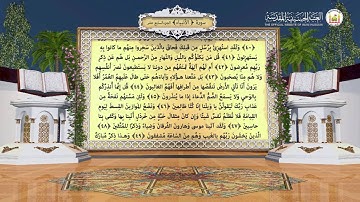 سورة الأنبياء
العتبة الحسينية المقدسة
(٤٠) وَلَقَدِ اسْتُهْزِئَ بِرُسُلٍ مِنْ قَبْلِكَ فَحَاقَ بِالَّذِينَ سَخِرُوا مِنْهُمْ مَا كَانُوا بِهِ
يَسْتَهْزِئُونَ (٤١) قُلْ مَنْ يَكْلَؤُكُمْ بِاللَّيْلِ وَالنَّهَارِ مِنَ الرَّحْمَنِ بَلْ هُمْ عَنْ ذِكْرِ
رَبِّهِمْ مُعْرِضُونَ (٤٢) أَمْ لَهُمْ آلِهَةٌ تَمْنَعُهُمْ مِنْ دُونِنَا لَا يَسْتَطِيعُونَ نَصْرَ أَنْفُسِهِمْ
وَلَا هُمْ مِنَّا يُصْحَبُونَ (٤٣) بَلْ مَتَّعْنَا هَؤُلَاءِ وَآبَاءَهُمْ حَتَّى طَالَ عَلَيْهِمُ الْعُمُرُ أَفَلَا
يَرَوْنَ أَنَّا نَأْتِي الْأَرْضَ نَنْقُصُهَا مِنْ أَطْرَافِهَا أَفَهُمُ الْغَالِبُونَ (٤٤) قُلْ إِنَّمَا أُنْذِرُكُمْ
بِالْوَحْيِ وَلَا يَسْمَعُ الصُّمُّ الدُّعَاءَ إِذَا مَا يُنْذَرُونَ (٤٥) وَلَئِنْ مَسَّتْهُمْ نَفْحَةٌ مِنْ
عَذَابِ رَبِّكَ لَيَقُولُنَّ يَا وَيْلَنَا إِنَّا كُنَّا ظَالِمِينَ (٤٦) وَنَضَعُ الْمَوَازِينَ الْقِسْطَ لِيَوْمِ
الْقِيَامَةِ فَلَا تُظْلَمُ نَفْسٌ شَيْئًا وَإِنْ كَانَ مِثْقَالَ حَبَّةٍ مِنْ خَرْدَلٍ أَتَيْنَا بِهَا وَكَفَى بِنَا
حَاسِبِينَ (٤٧) وَلَقَدْ آتَيْنَا مُوسَى وَهَارُونَ الْفُرْقَانَ وَضِيَاءً وَذِكْرًا لِلْمُتَّقِينَ (٤٨)
الَّذِينَ يَخْشَوْنَ رَبَّهُمْ بِالْغَيْبِ وَهُمْ مِنَ السَّاعَةِ مُشْفِقُونَ (٤٩) وَهَذَا ذِكْرٌ مُبَارَكٌ